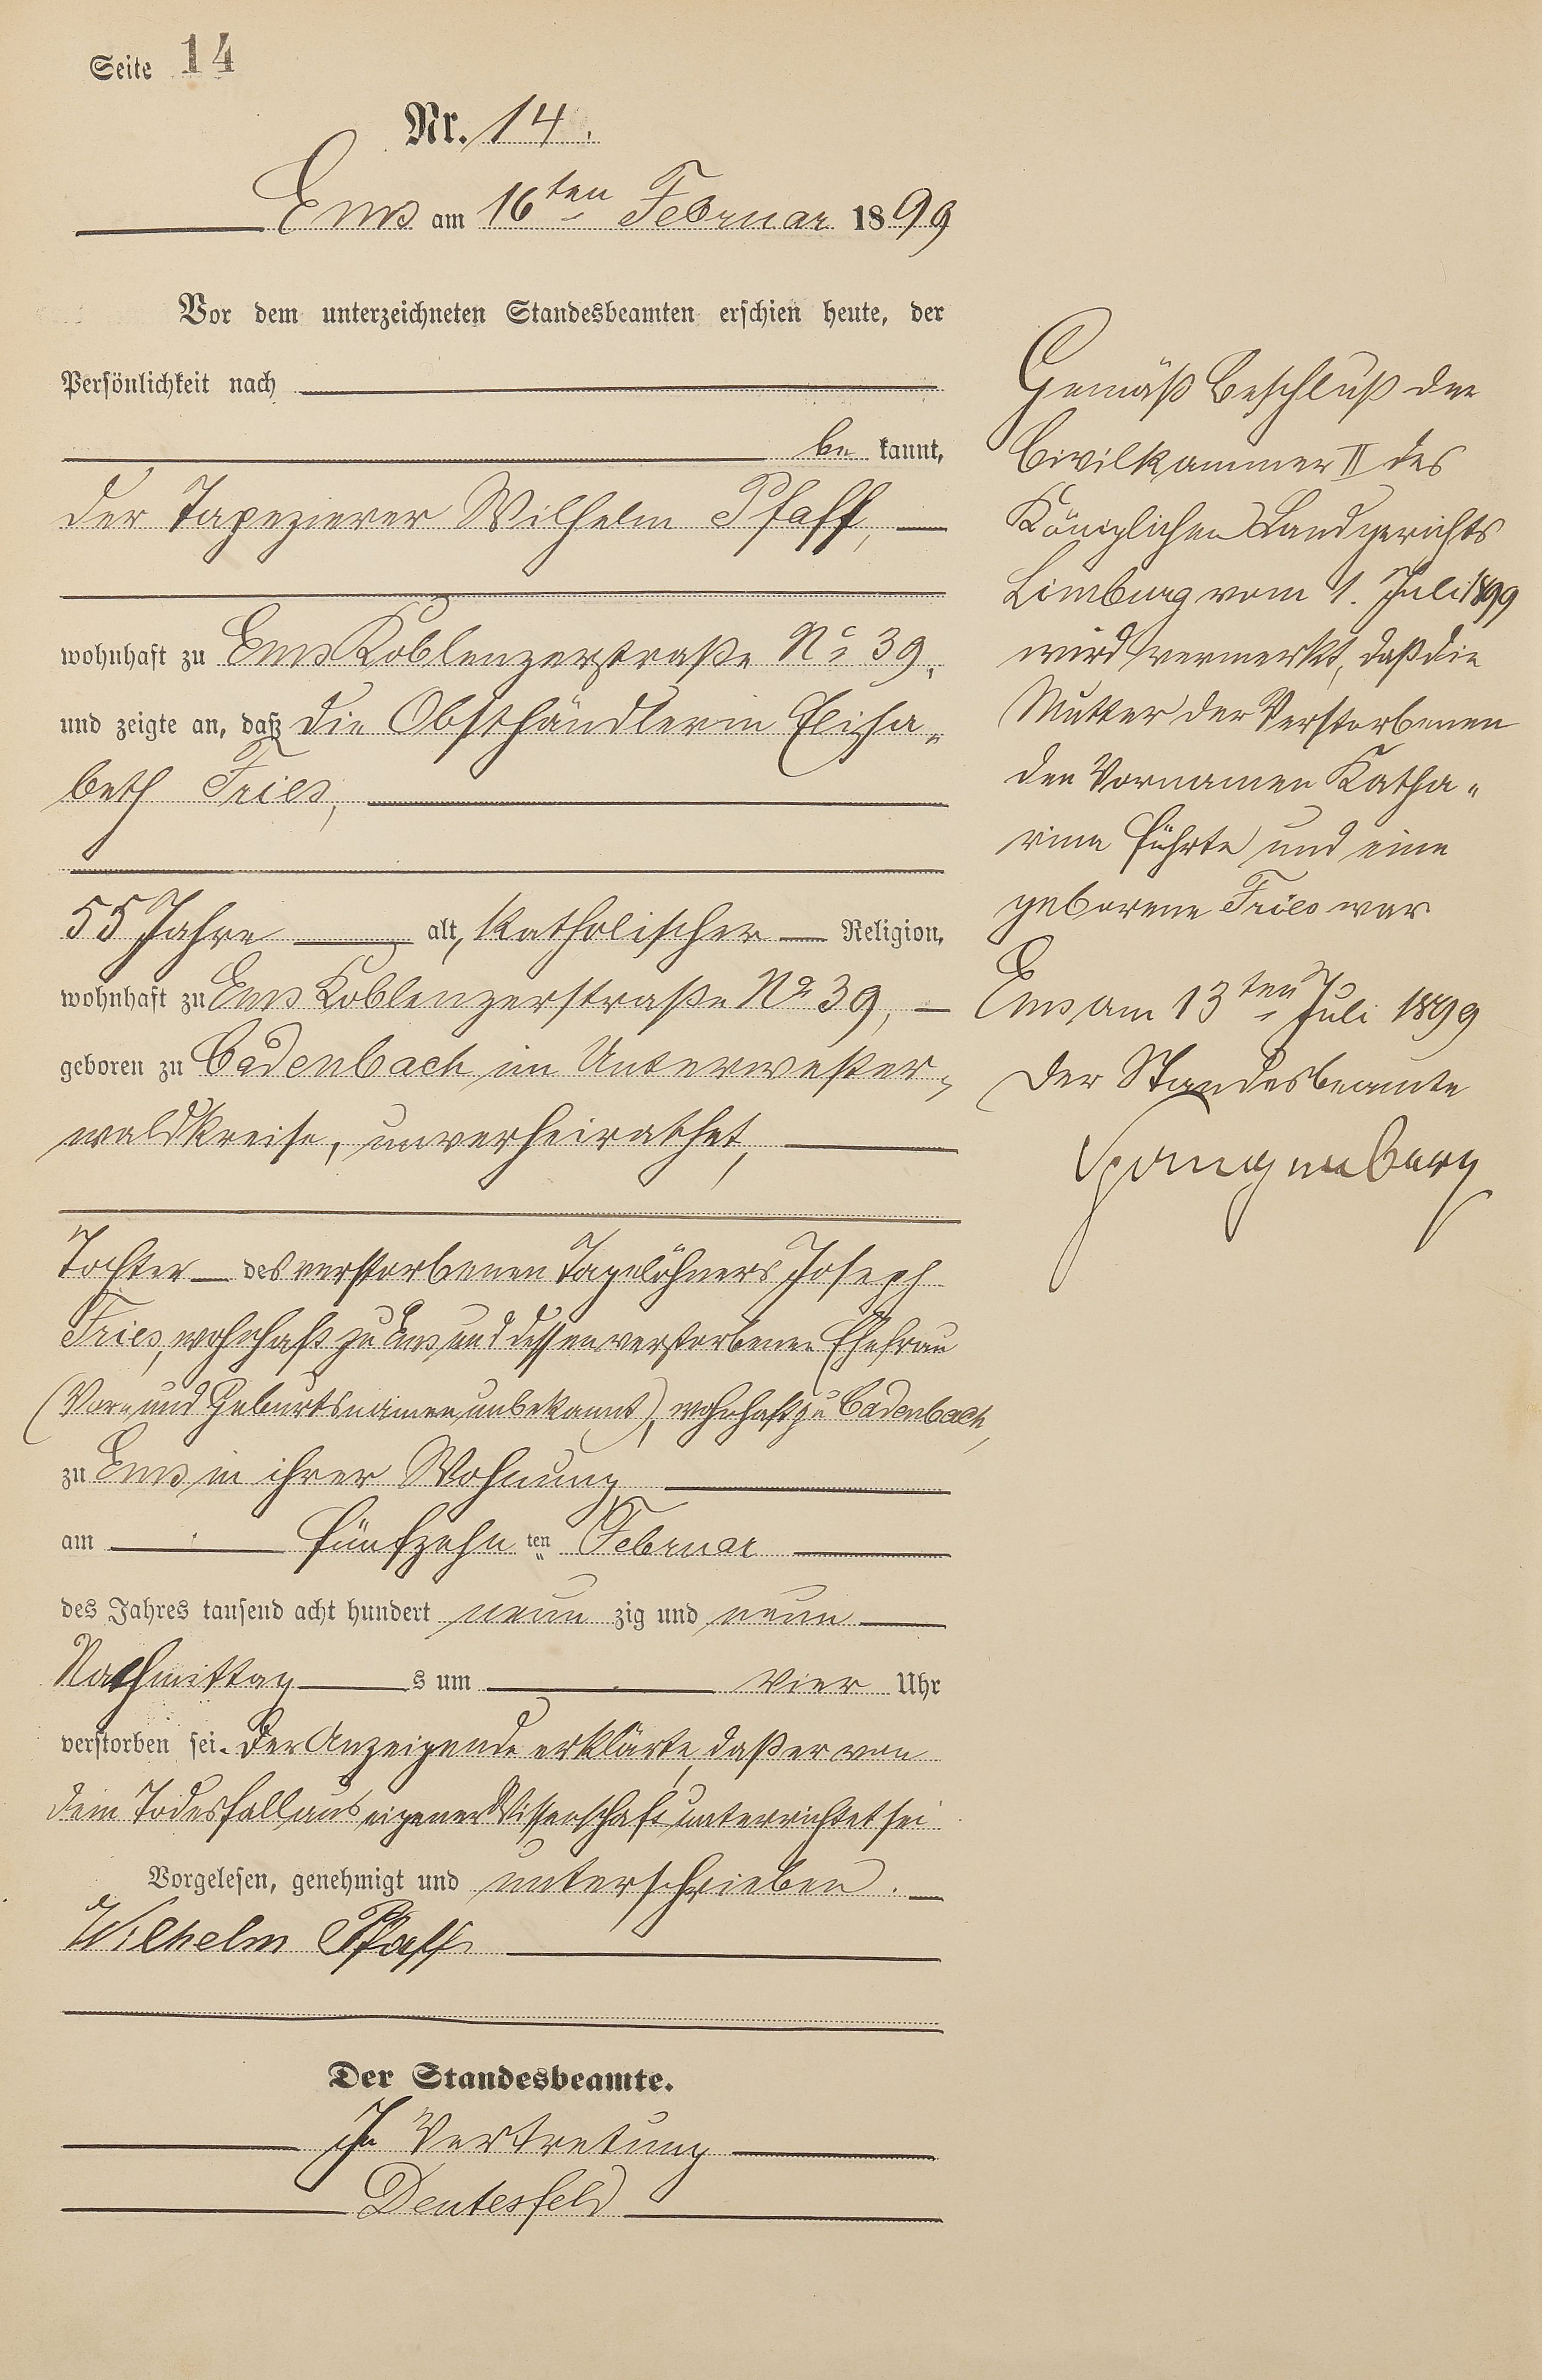 Seite 14
Nr. 14.
Ems am 16ten Februar 1899
Vor dem unterzeichneten Standesbeamten erschien heute, der
Persönlichkeit nach
be kannt,
der Tapezierer Wilhelm Pfaff,
wohnhaft zu Ems Koblenzerstraße No 39,
und zeigte an, daß die Obsthändlerin Elisa-
beth Fries,
55 Jahre alt, katholischer Religion,
wohnhaft zu Ems Koblenzerstraße No 39,
geboren zu Cadenbach im Unterwester-
waldkreise, unverheirathet,
Tochter des verstorbenen Tagelöhners Joseph
Fries, wohnhaft zu Ems und dessen verstorbenen Ehefrau
(Vor- und Geburtsnamen unbekannt), wohnhaft zu Cadenbach,
zu Ems in ihrer Wohnung
am fünfzehn ten Februar
des Jahres tausend acht hundert neun zig und neun
Nachmittag s um vier Uhr
verstorben sei. Der Anzeigende erklärte, daß er von
dem Todesfall aus eigener Wissenschaft unterrichtet sei
Vorgelesen, genehmigt und unterschrieben.
Wilhelm Pfaff
Der Standesbeamte.
In Vertretung
Deutesfeld
Gemäß Beschluß der
Civilkammer II des
Königlichen Landgerichts
Limburg vom 1. Juli 1899
wird vermerkt, daß die
Mutter der Verstorbenen
den Vornamen Katha-
rina führte und eine
geborene Fries war
Ems am 13ten Juli 1899
Der Standesbeamte